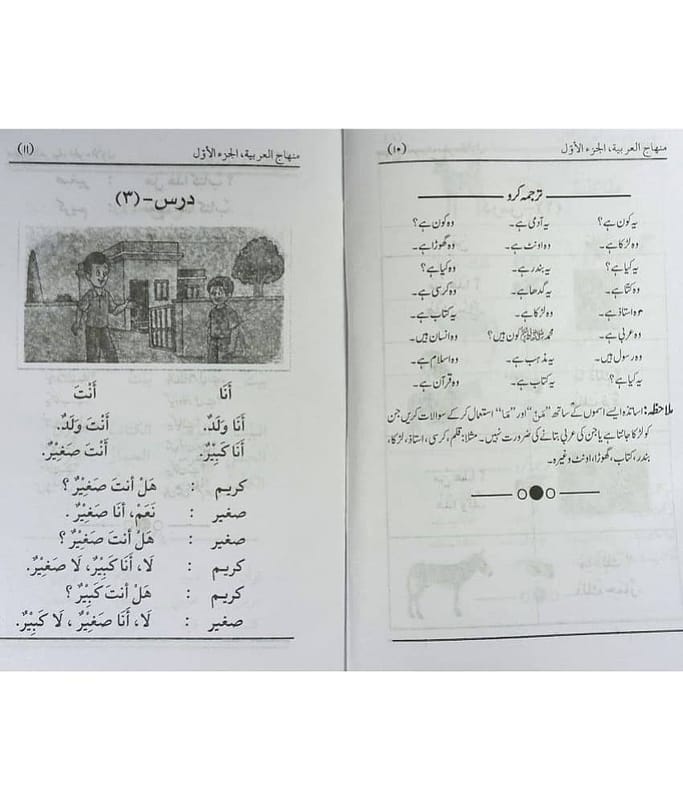 منهاج العربية، الجزء الأوّل (١٠)
ترجمہ کرو
یہ کون ہے؟ یہ آدمی ہے۔ وہ کون ہے؟
وہ لڑکا ہے۔ وہ اونٹ ہے۔ وہ گھوڑا ہے۔
یہ کیا ہے؟ یہ بندر ہے۔ وہ کیا ہے؟
وہ کتّا ہے۔ یہ گدھا ہے۔ وہ کرسی ہے۔
وہ استاذ ہے۔ وہ لڑکا ہے۔ یہ کتاب ہے۔
وہ عربی ہے۔ محمد ﷺ کون ہیں؟ وہ انسان ہیں۔
وہ رسول ہیں۔ یہ مذہب ہے۔ وہ اسلام ہے۔
یہ کیا ہے؟ یہ کتاب ہے۔ وہ قرآن ہے۔
ملاحظہ: اساتذہ ایسے اسموں کے ساتھ ”مَنْ“ اور ”مَا“ استعمال کر کے سوالات کریں جن
کو لڑکا جانتا ہے یا جن کی عربی بتانے کی ضرورت نہیں۔ مثلا: قلم، کرسی، استاذ، لڑکا،
بندر، کتاب، گھوڑا، اونٹ وغیرہ۔
منهاج العربية، الجزء الأوّل (١١)
درس-(٣)
أَنَا أَنْتَ
أَنَا وَلَدٌ. أَنْتَ وَلَدٌ.
أَنَا كَبِيْرٌ. أَنْتَ صَغِيْرٌ.
كريم : هَلْ أنتَ صَغِيْرٌ ؟
صغير : نَعَمْ، أنَا صَغِيْرٌ .
صغير : هَلْ أَنتَ صَغِيْرٌ ؟
كريم : لَا، أَنَا كَبِيْرٌ، لَا صَغِيْرٌ.
كريم : هَلْ أنتَ كَبِيْرٌ ؟
صغير : لَا، أَنَا صَغِيْرٌ ، لَا كَبِيْرٌ.